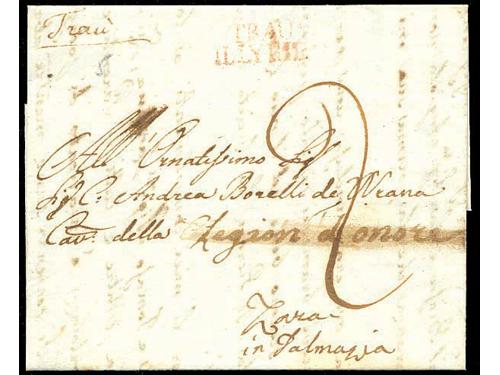 Traù
TRAU
ILLYRIE
All' Ornatissimo Sigr
Sigr C. Andrea Borelli de Wrana
Cavr. della Legion d'onore
2
Zara
in Dalmazia